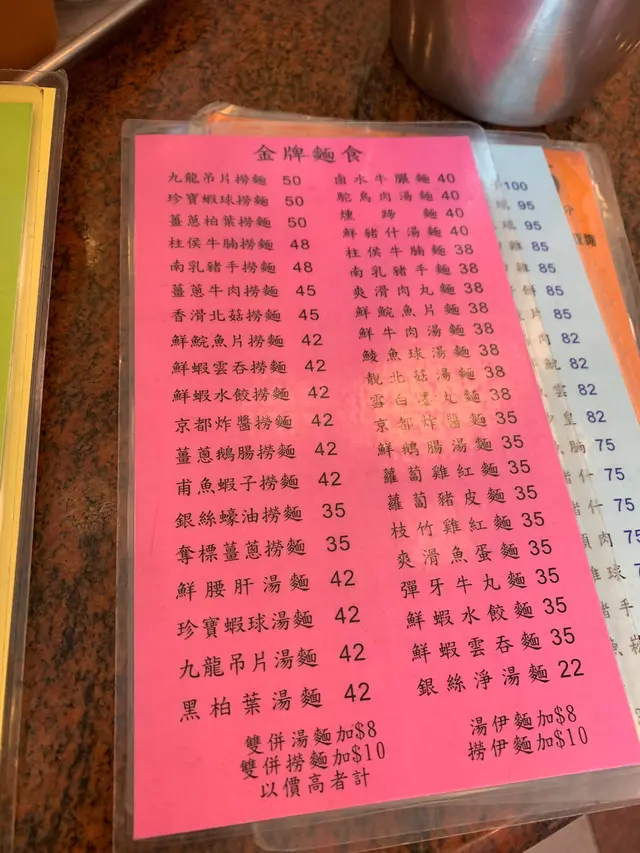 金牌麵食
九龍吊片撈麵 50
珍寶蝦球撈麵 50
薑蔥柏葉撈麵 50
柱侯牛腩撈麵 48
南乳豬手撈麵 48
薑蔥牛肉撈麵 45
香滑北菇撈麵 45
鮮鯇魚片撈麵 42
鮮蝦雲吞撈麵 42
鮮蝦水餃撈麵 42
京都炸醬撈麵 42
薑蔥鵝腸撈麵 42
甫魚蝦子撈麵 42
銀絲蠔油撈麵 35
奪標薑蔥撈麵 35
鮮腰肝湯麵 42
珍寶蝦球湯麵 42
九龍吊片湯麵 42
黑柏葉湯麵 42
雙併湯麵加$8
雙併撈麵加$10
以價高者計
鹵水牛𦟌麵 40
鴕鳥肉湯麵 40
燻蹄麵 40
鮮豬什湯麵 40
柱侯牛腩麵 38
南乳豬手麵 38
爽滑肉丸麵 38
鮮鯇魚片麵 38
鮮牛肉湯麵 38
鯪魚球湯麵 38
靚北菇湯麵 38
雪白墨丸麵 38
京都炸醬麵 35
鮮鵝腸湯麵 35
蘿蔔雞紅麵 35
蘿蔔豬皮麵 35
枝竹雞紅麵 35
爽滑魚蛋麵 35
彈牙牛丸麵 35
鮮蝦水餃麵 35
鮮蝦雲吞麵 35
銀絲淨湯麵 22
湯伊麵加$8
撈伊麵加$10
100
95
95
雞 85
85
片 85
肉 82
魷 82
雲 82
皇 82
腩 75
豬什 75
什 75
肉 75
雞球
豬手
魚